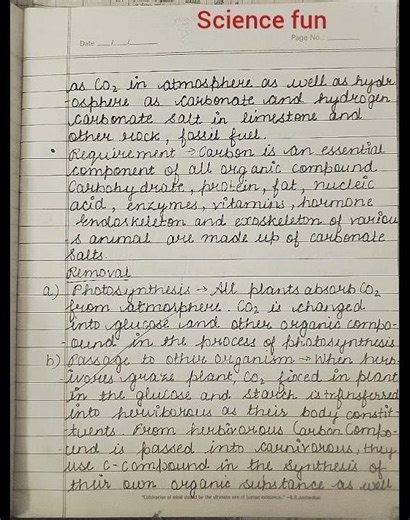 Science fun
Date __/__/__
Page No.: ______
as CO2 in atmosphere as well as hydr
-osphere as carbonate and hydrogen
carbonate salt in limestone and
other rock, fossil fuel.
• Requirement → Carbon is an essential
component of all organic compound.
Carbohydrate, protein, fat, nucleic
acid, enzymes, vitamins, hormone
endoskeleton and exoskeleton of variou
-s animal are made up of carbonate
salts.
Removal
a.) Photosynthesis → All plants absorb CO2
from atmosphere. CO2 is changed
into glucose and other organic compo-
-ound in the process of photosynthesis
b) Passage to other organism → When herb-
-ivores graze plant, CO2 fixed in plant
in the glucose and starch is transferred
into herivborous as their body constit-
-tuents. From herbivorous Carbon Compo-
-und is passed into carnivorous, they
use C-compound in the synthesis of
their own organic substance as well
"Cultivation of mind should be the ultimate aim of human existence." -B.R.Ambedkar